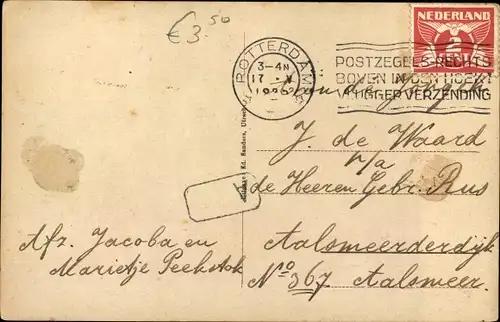 € 3.50
NEDERLAND
2
CENT
ROTTERDAM
3-4N
17 V
POSTZEGELS RECHTS
BOVEN IN DEN HOEK!
VLUGGER VERZENDING
J. de Waard
p/a
de Heeren Gebr. Rus
Aalsmeerderdijk
No 367 Aalsmeer.
Afz. Jacoba en
Marietje Peekstok
Ed. Sanders, Utrecht